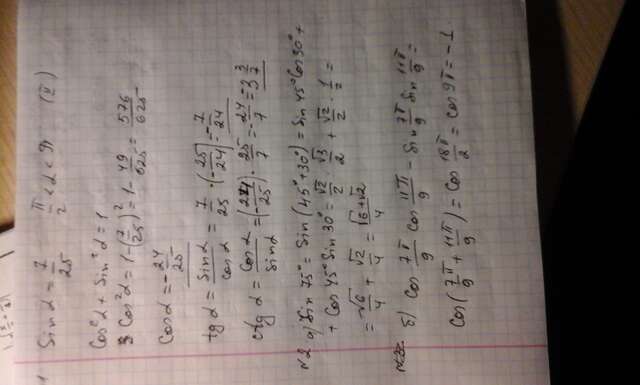 1 Sin α = 7/25 π/2 < α < π (II)
Cos²α + Sin²α = 1
Cos²α = 1 - (7/25)² = 1 - 49/625 = 576/625
Cos α = -24/25
tg α = Sin α/cos α = 7/25 · (-25/24) = -7/24
ctg α = Cos α/Sin α = (-24/25) · 25/7 = -24/7 = 3 3/7
№2 а) Sin 75° = Sin (45° + 30°) = Sin 45° Cos 30° +
+ Cos 45° Sin 30° = √2/2 · √3/2 + √2/2 · 1/2 =
= √6/4 + √2/4 = √6+√2/4
б) Cos 7π/9 Cos 11π/9 - Sin 7π/9 Sin 11π/9 =
Cos (7π/9 + 11π/9) = Cos 18π/2 = cos 9π = -1